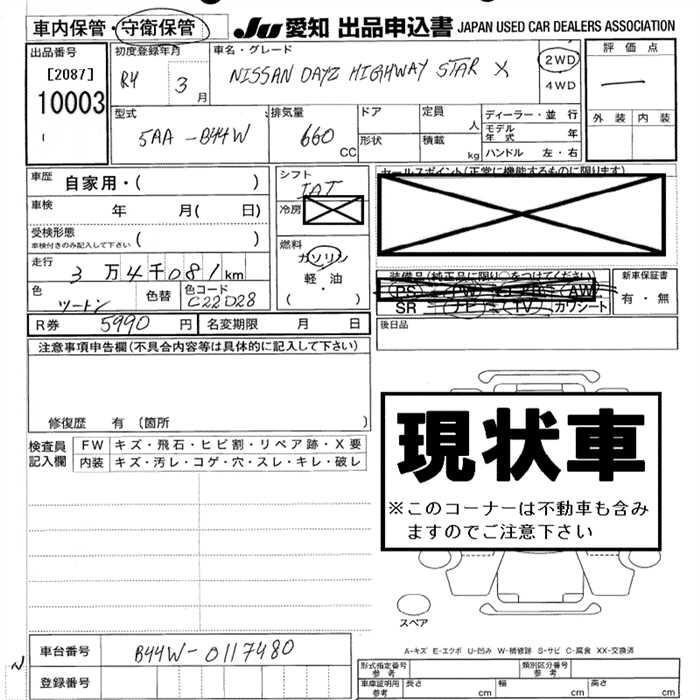 車内保管・守衛保管 JU 愛知 出品申込書 JAPAN USED CAR DEALERS ASSOCIATION
出品番号 初度登録年月 車名・グレード 評価点
[2087] R4 3月 NISSAN DAYZ HIGHWAY STAR X 2WD 4WD —
10003 外装 内装
型式 排気量 ドア 定員 人 ディーラー・並行
5AA-B44W 660 CC 形状 積載 kg モデル年式 年
ハンドル 左・右
車歴 自家用・( ) シフト IAT セールスポイント(正常に機能するものに限ります)
車検 年 月( 日) 冷房
受検形態 車検付きのみ記入して下さい ( ) 燃料 ガソリン
走行 3万4千081km (軽・油)
装備品(純正品に限り○をつけてください) 新車保証書
色 ツートン 色替 色コード C22D28 PS AW 有・無
SR ナビ TV カワシート
R券 5990円 名変期限 月 日 後日品
注意事項申告欄(不具合内容等は具体的に記入して下さい)
修復歴 有 (箇所 )
現状車
※このコーナーは不動車も含みますのでご注意下さい
検査員記入欄 FW キズ・飛石・ヒビ割・リペア跡・X要
内装 キズ・汚レ・コゲ・穴・スレ・キレ・破レ
スペア
A-キズ E-エクボ U-凹み W-補修跡 S-サビ C-腐食 XX-交換済
車台番号 B44W-0117480 形式指定番号 参考 類別区分番号 参考
登録番号 車庫証明用 参考 長さ cm 幅 cm 高さ cm